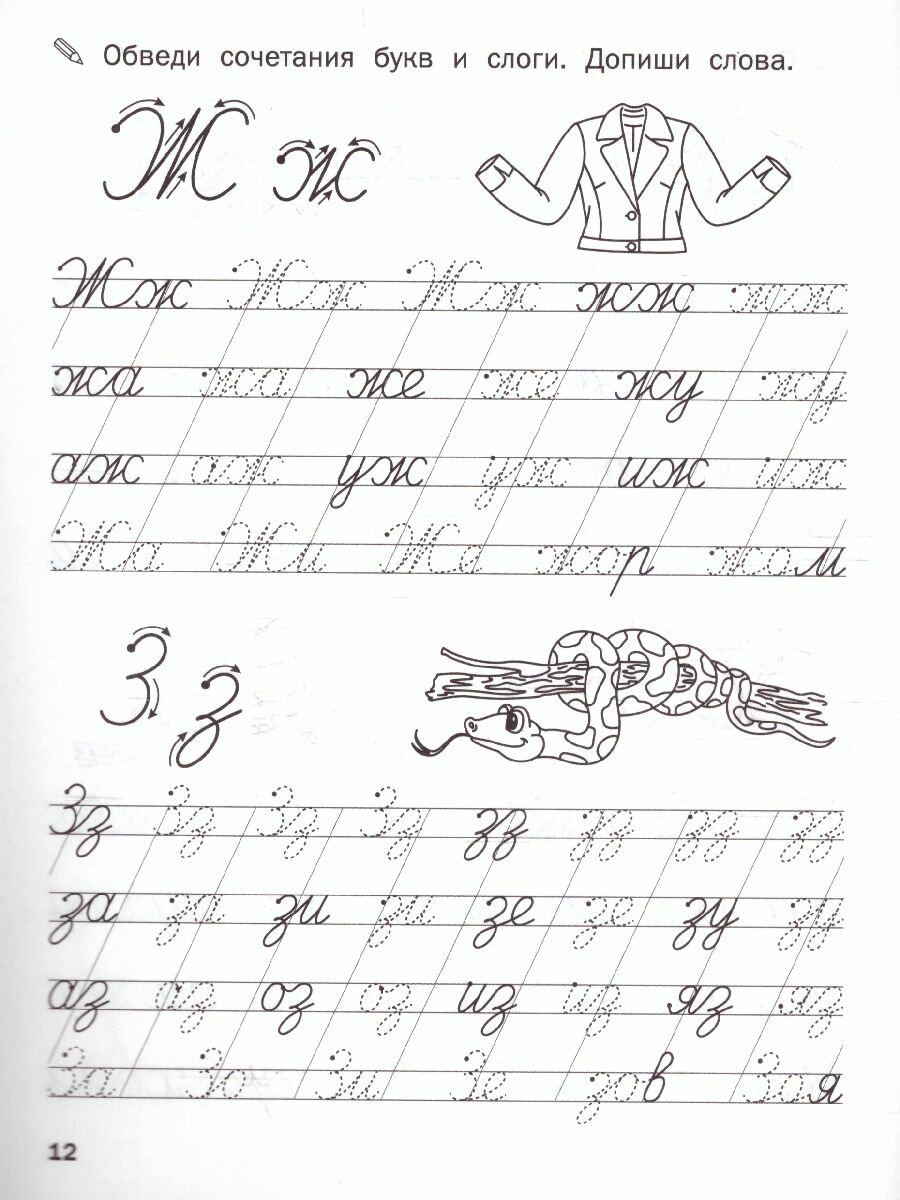 Обведи сочетания букв и слоги. Допиши слова.
Ж ж
Жж Жж Жж жж жж
жа жа же же жу жу
аж аж уж уж иж иж
Жа Жи Же жор жом
З з
Зз Зз Зз Зз зз зз зз зз
за за зи зи зе зе зу зу
аз аз оз оз из из яз яз
За Зо Зи Зе зов Зоя
12